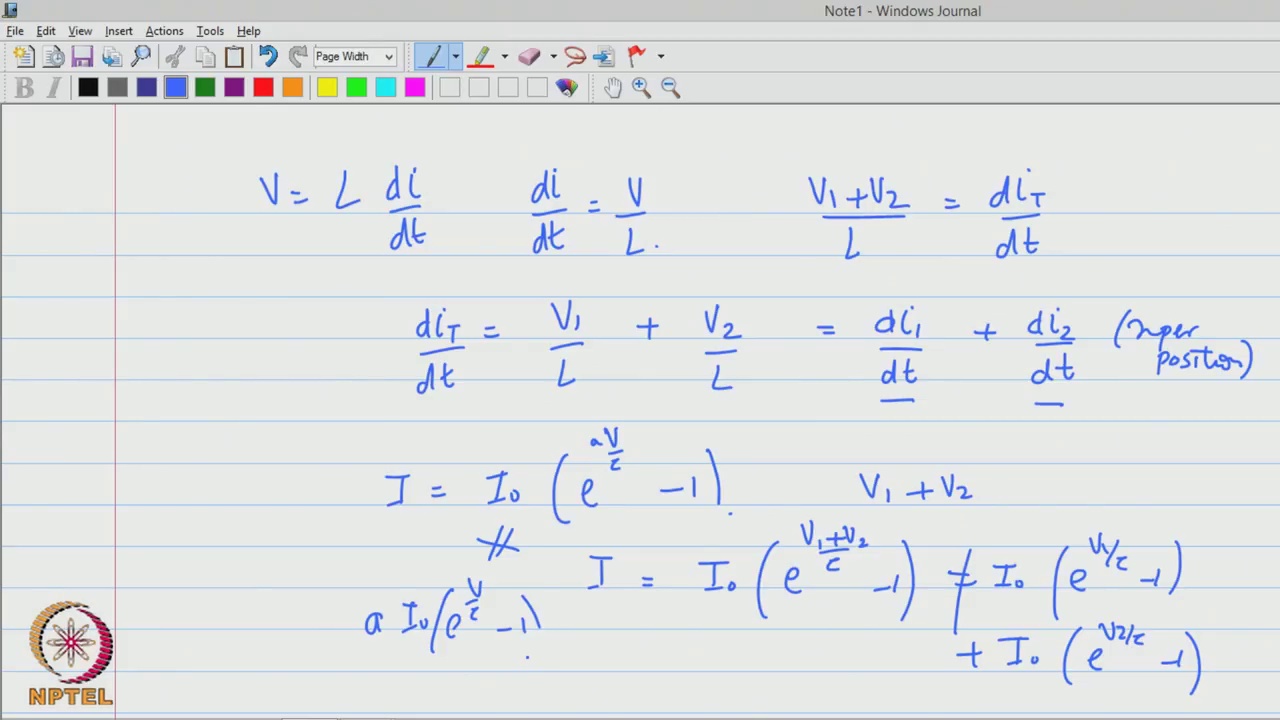 Note1 - Windows Journal
File Edit View Insert Actions Tools Help
Page Width
B I
V = L di/dt di/dt = V/L. (V1 + V2)/L = diT/dt
diT/dt = V1/L + V2/L = di1/dt + di2/dt (super
position)
I = I0 (e^(aV/τ) - 1). V1 + V2
I = I0 (e^((V1+V2)/τ) - 1) ≠ I0 (e^(V1/τ) - 1)
a I0 (e^(V/τ) - 1).
+ I0 (e^(V2/τ) - 1)
NPTEL